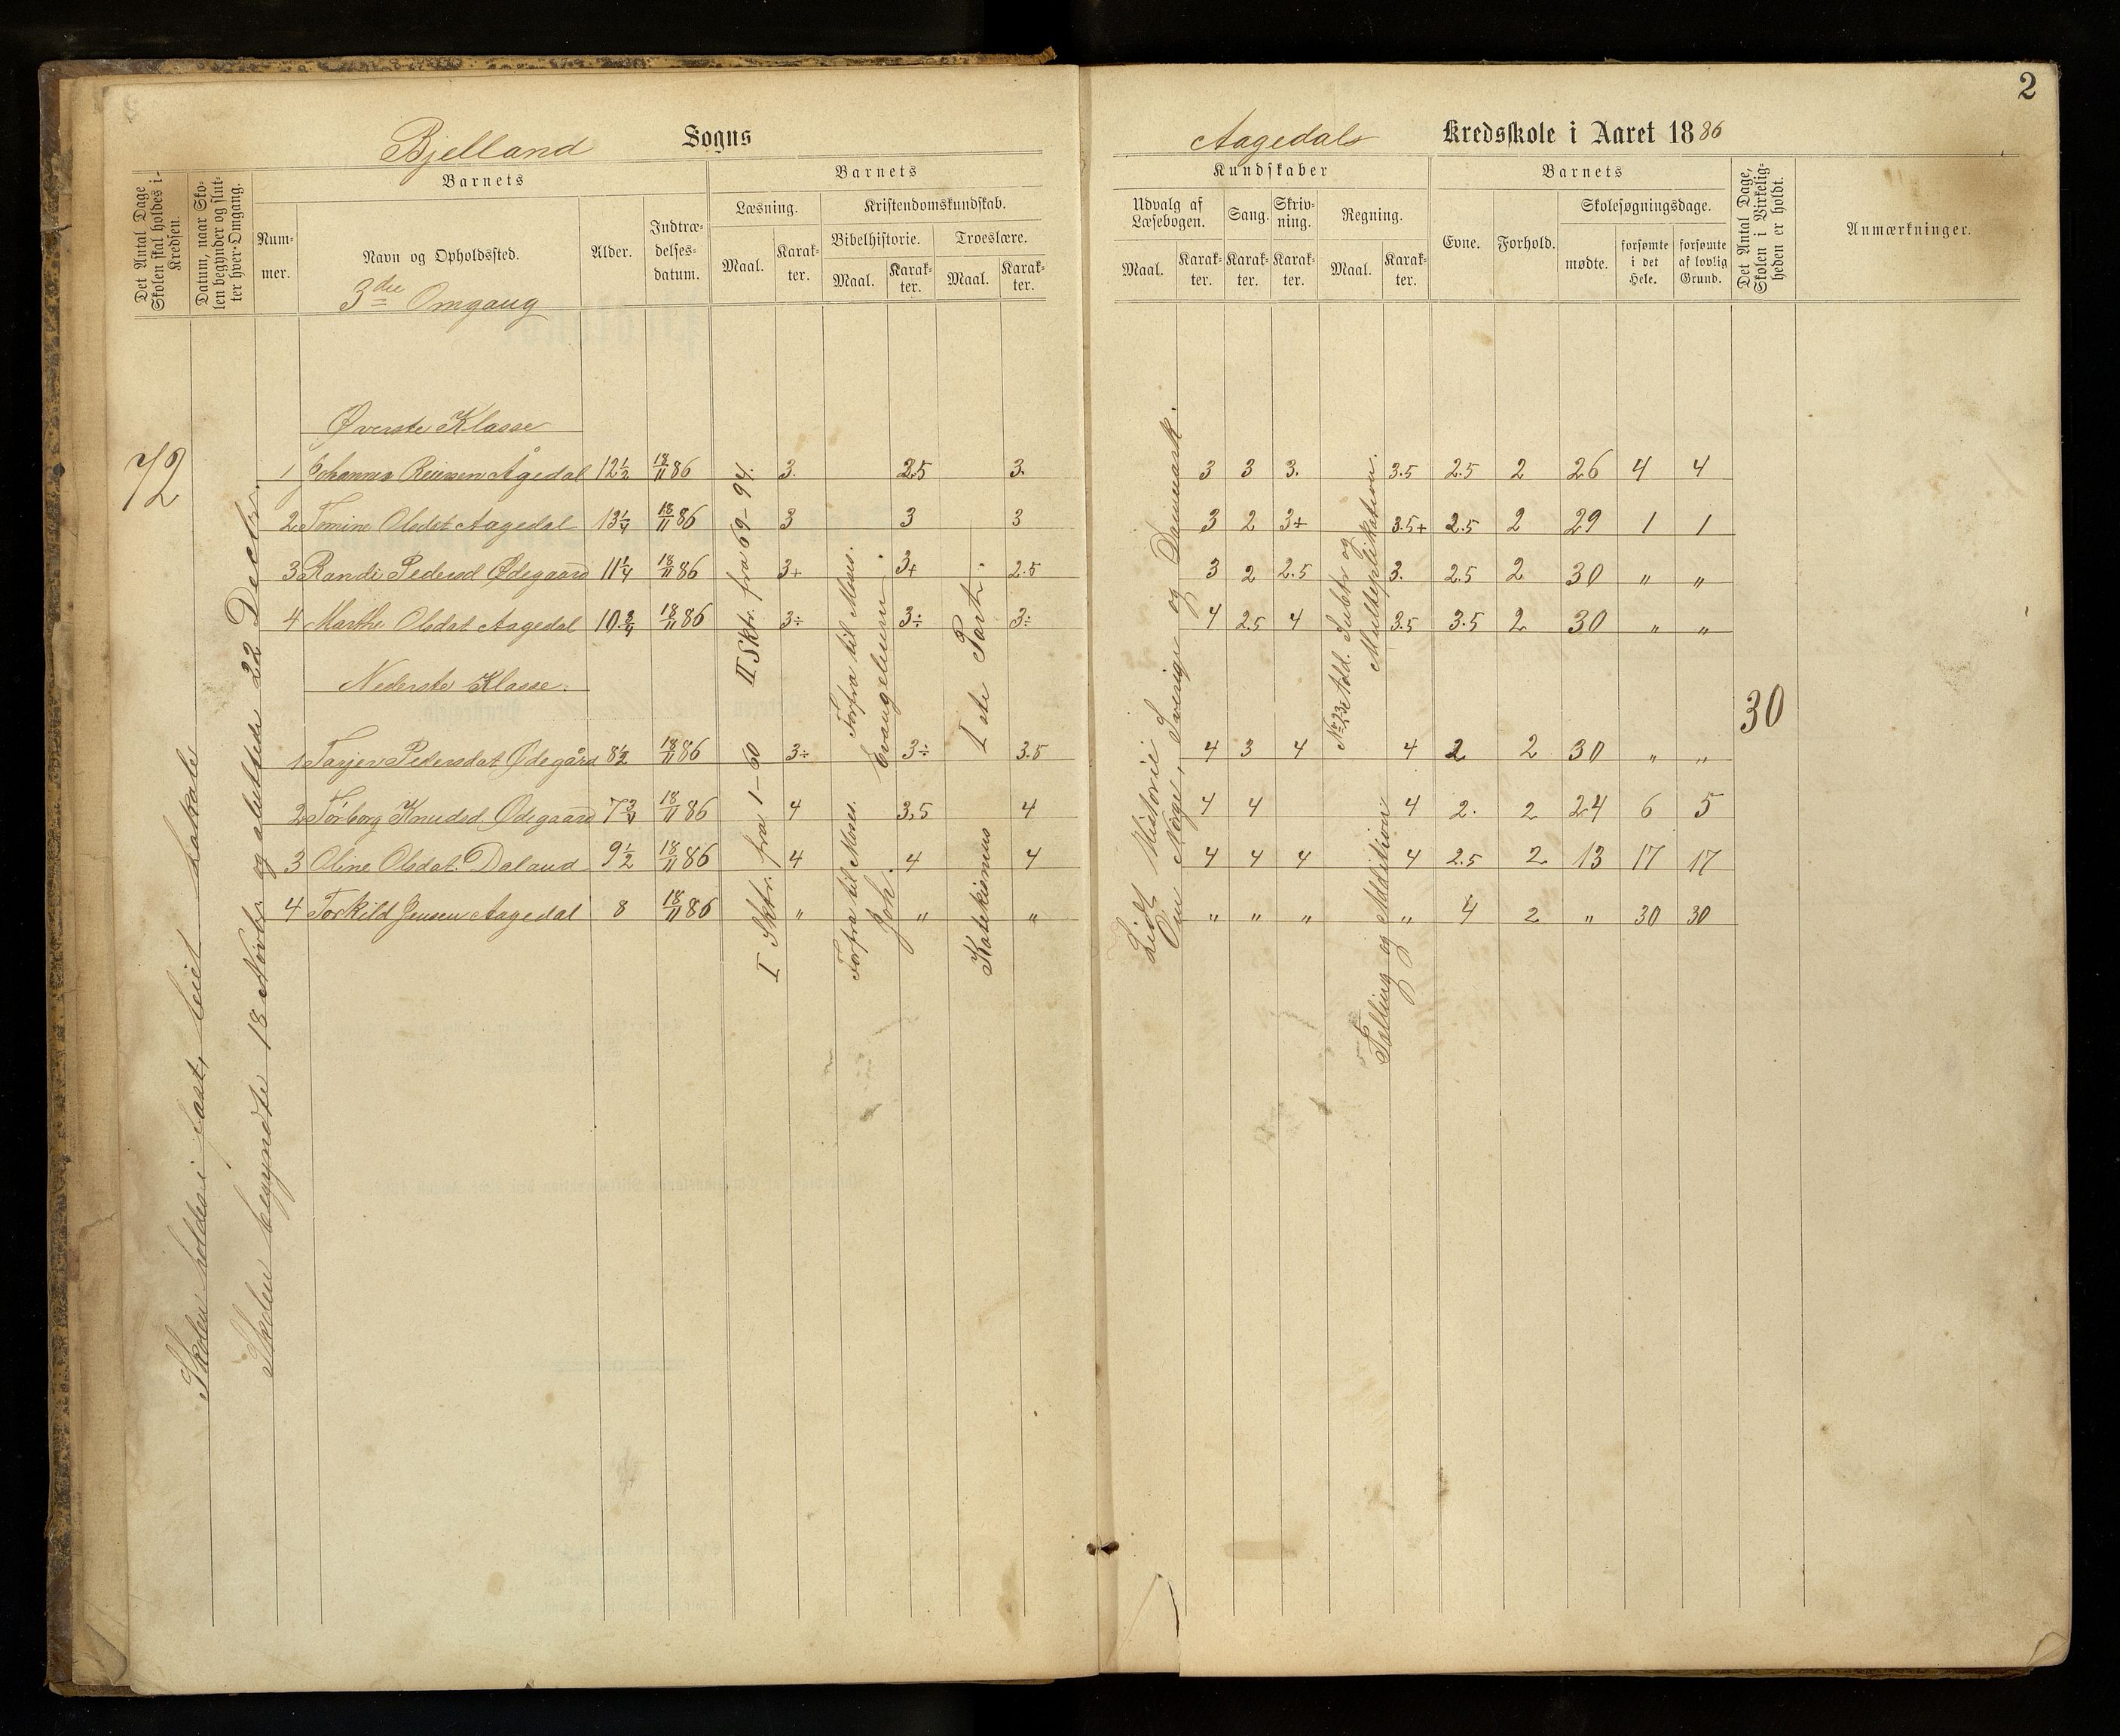 2
Bjelland Sogns
Aagedals Kredsskole i Aaret 1886
Det Antal Dage Skolen skal holdes i Kredsen.
Datum, naar Skolen begynder og slutter hver Omgang.
Barnets
Nummer.
Navn og Opholdssted.
3die Omgang
Alder.
Indtrædelsesdatum.
Barnets
Læsning.
Maal.
Karakter.
Kristendomskundskab.
Bibelhistorie.
Maal.
Karakter.
Troeslære.
Maal.
Karakter.
Kundskaber
Udvalg af Læsebogen.
Maal.
Karakter.
Sang.
Karakter.
Skrivning.
Karakter.
Regning.
Maal.
Karakter.
Barnets
Evne.
Forhold.
Skolesøgningsdage.
mødte.
forsømte i det Hele.
forsømte af lovlig Grund.
Det Antal Dage, Skolen i Virkeligheden er holdt.
Anmærkninger.
72
Skolen holdes i fast, leiet Lokale
Skolen begyndte 18 Novbr og sluttede 22 Decbr.
Øverste Klasse
1 Johannes Reiersen Ågedal 12½ 18/11 86 3. 2.5 3. 3 3 3. 3.5 2.5 2 26 4 4
2 Tomine Olsdat Aagedal 13¼ 18/11 86 3 3 3 3 2 3+ 3.5+ 2.5 2 29 1 1
3 Randi Pedersd Ødegaard 11¼ 18/11 86 3+ 3+ 2.5 3 2 2.5 3. 2.5 2 30 " "
4 Marthe Olsdat Aagedal 10¾ 18/11 86 3÷ 3÷ 3÷ 4 2.5 4 3.5 3.5 2 30 " "
II Sktr. fra 69-94.
Forfra til Moses.
Evangelium
I ste Part.
Lidt Historie
Om Norge, Sverige og Danmark.
Add. Subtr og
Multiplikation.
Nederste Klasse.
30
1 Tarjer Pedersdat Ødegård 8½ 18/11 86 3÷ 3÷ 3.5 4 3 4 4 2 2 30 " "
2 Torborg Knudsd Ødegaard 7¾ 18/11 86 4 3.5 4 4 4 4 2. 2 24 6 5
3 Oline Olsdat. Daland 9½ 18/11 86 4 4 4 4 4 4 4 2.5 2 13 17 17
4 Torkild Jensen Aagedal 8 18/11 86 " " " " " " " 4 2 " 30 30
I Sktr. fra 1-60
Forfra til Moses.
Joh.
Katekismus
Tælling og Addition